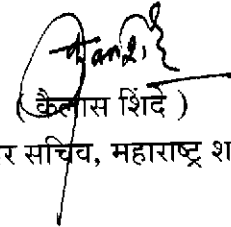 ( कैलास शिंदे )
र सचिव, महाराष्ट्र श